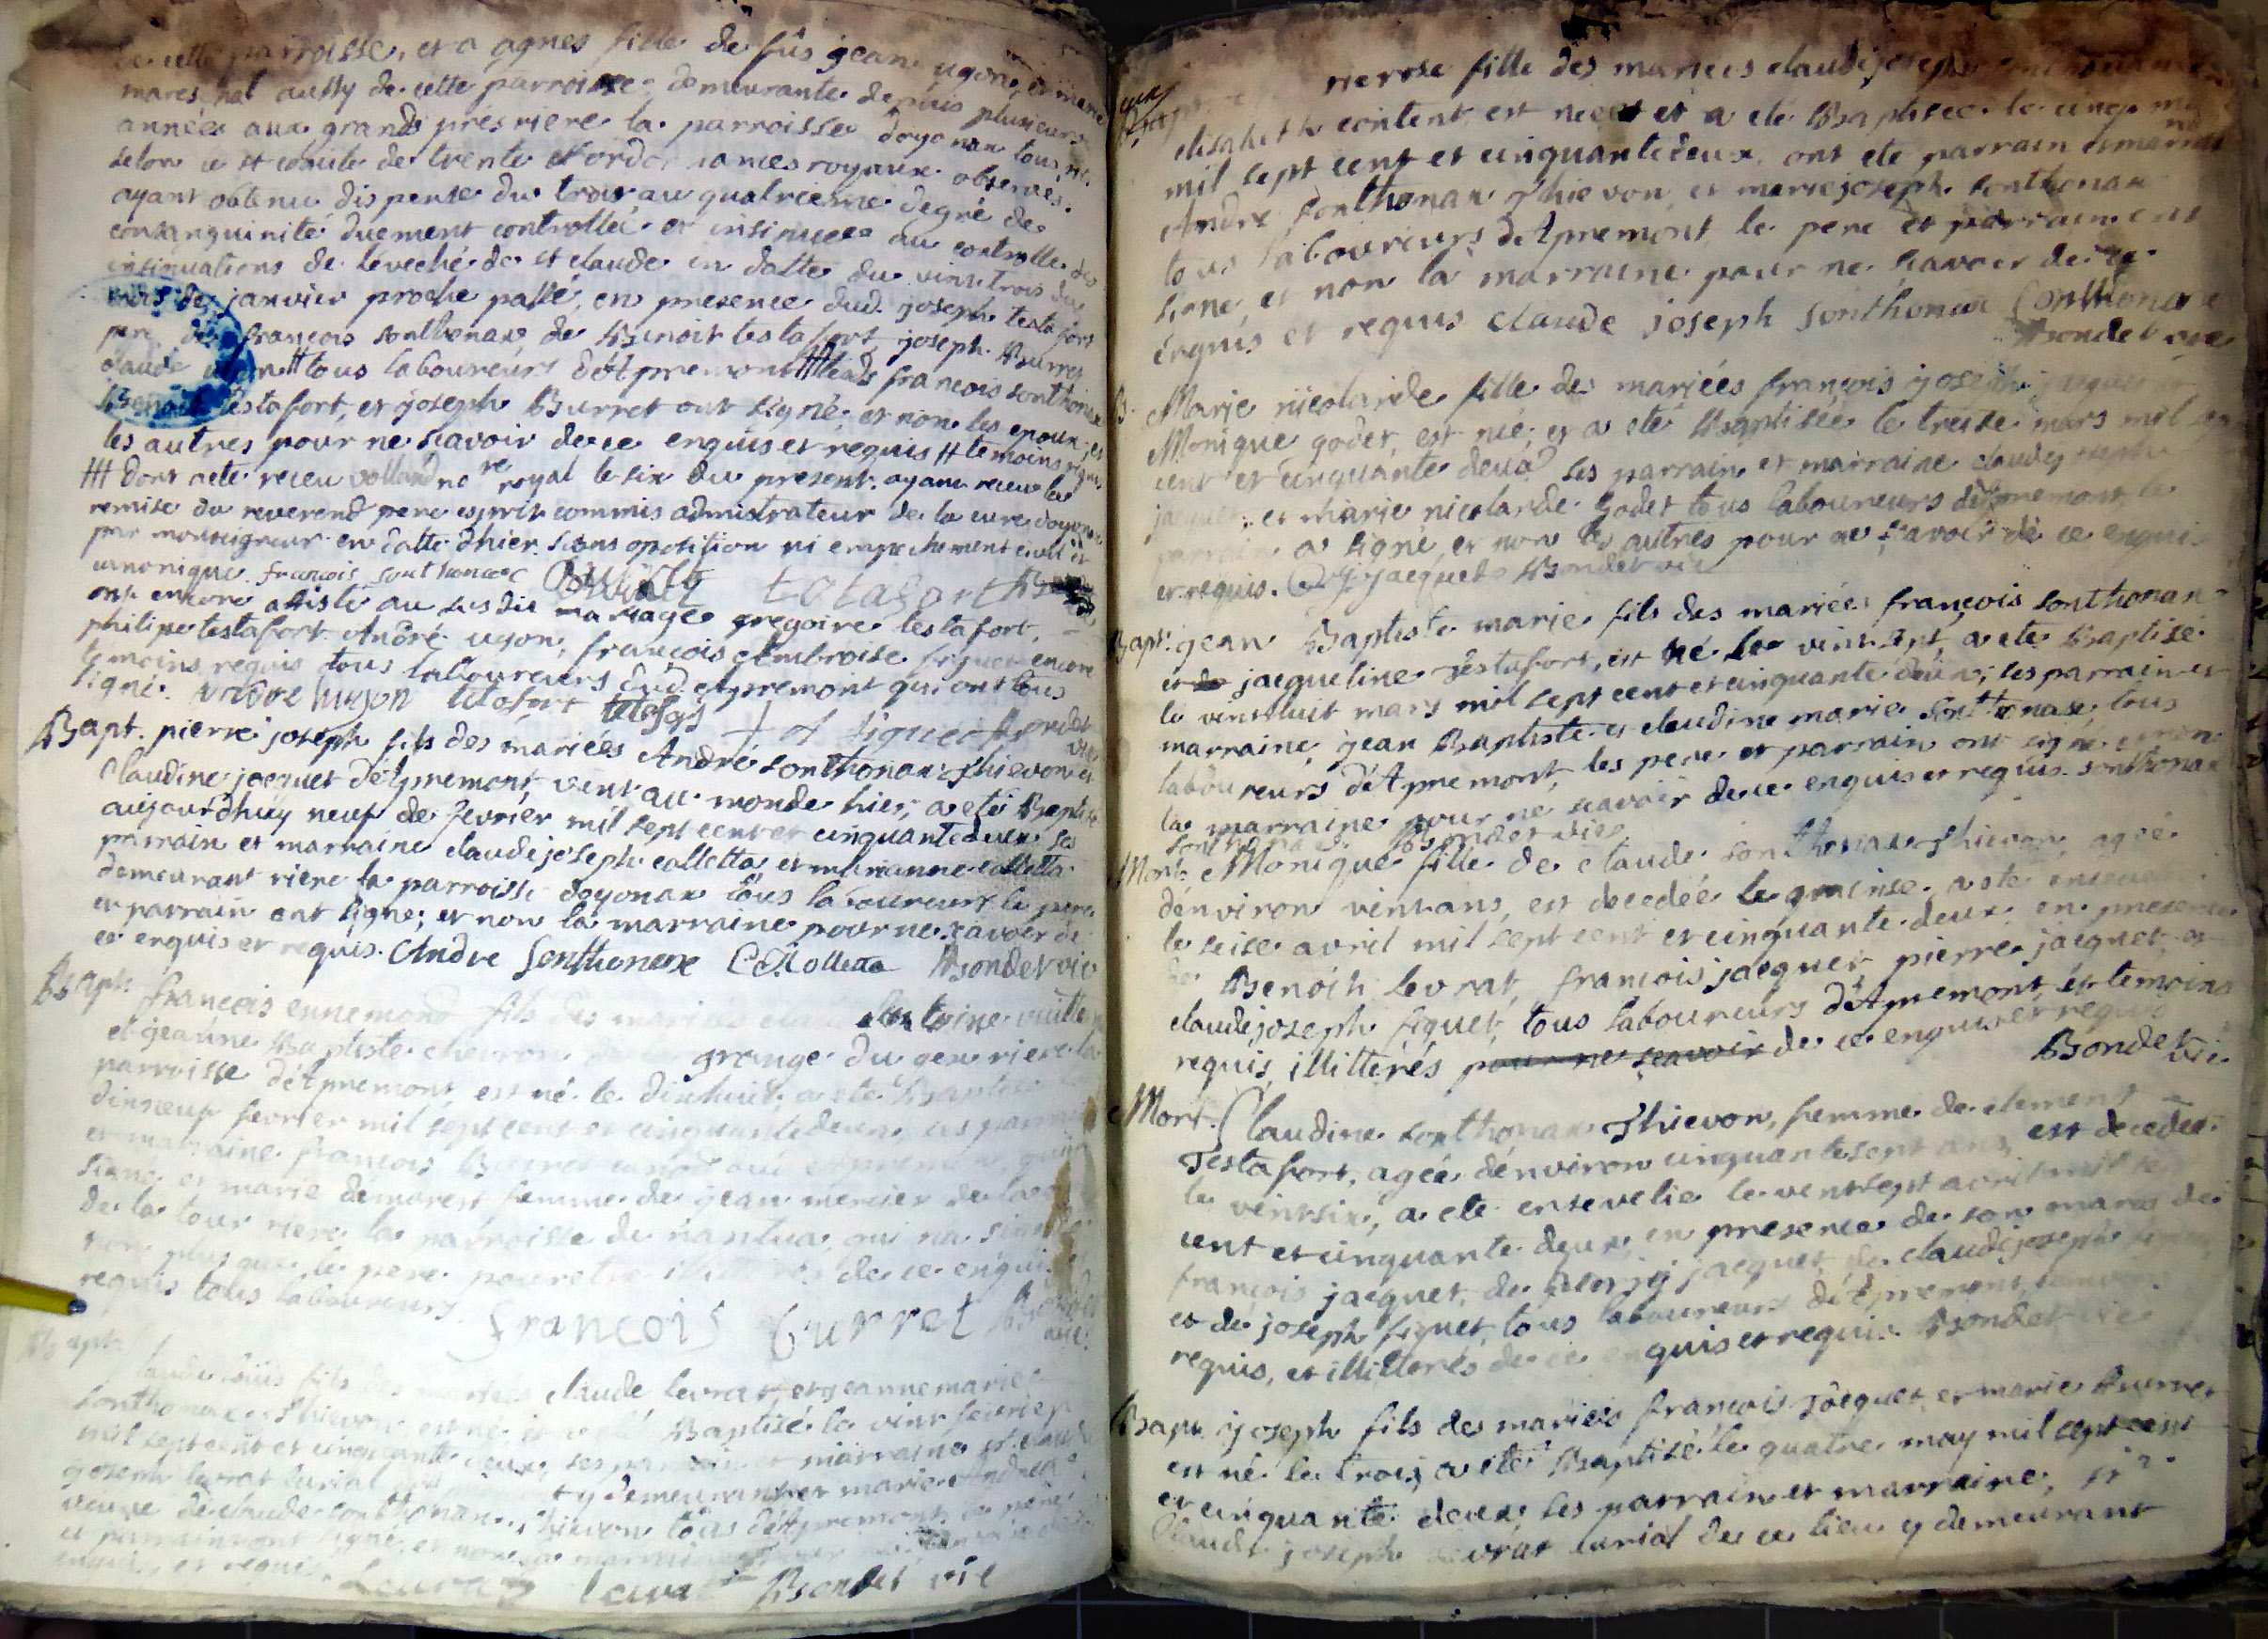 de cette parroisse, et a agnes fille de fûs jean ugon, et marie
mareschal aussy de cette parroisse, demeurante depuis plusieurs
années aux grands prés riere la parroisse doyonax tous,
selon le st concile de trente et ordonnances royaux observés.
ayant obtenu dispense du trois au quatrieme degré de
consanguinité duement controllée et insinuee au controlle des
insinuations de levêché de st claude en datte du vint trois du
mois de janvier proche passé, en presence dud. joseph testafort
pere, de françois sonthonax, de Benoit testafort, joseph Burret
claude ugon # tous laboureurs d'Apremont ### lesd. françois sonthonax
Benoit testafort, et joseph Burret ont signé, et non les epoux, et
les autres pour ne scavoir de ce enquis et requis # temoins requis
### dont acte receu volland nore royal le six du present. ayant receu la
remise du reverend pere esprit commis admistrateur de la cure doyonax
par monseigneur en datte d'hier. sans opotition ni empechement civil et
canonique. françois sonthonax Benoit totafort
ont encore assisté au susdit mariage gregoire testafort,
philipe testafort André ugon, françois Ambroise figuet encore
temoins requis tous laboureurs dud. Apremont qui ont tous
signé. Andre hugon totofort totafort f A figuet Bondet vic
Bapt. pierre joseph fils des mariées André sonthonax Thievon et
Claudine jacquet d'Apremont, vent au monde hier, a eté Baptisé
aujourd'huy neuf de fevrier mil sept cent et cinquante deux ses
parrain et marraine claude joseph colletta, et marianne colletta
demeurant riere la parroisse doyonax tous laboureurs le pere
et parrain ont signé; et non la marraine pour ne scavoir de
ce enquis et requis. Andre Sonthonax C Colletta Bondet vic
Bapt. françois ennemond fils des mariées Antoine vuille
et jeanne Baptiste chevron grange du gex riere la
parroisse d'Apremont, est né le dixhuit, a eté Baptisé
dixneuf fevrier mil sept cent et cinquante deux, ses parrain
et marraine françois Burret
signé et marie demarest femme de jean mercier de la
de la tour riere la parroisse de nantua, qui na signé
non plus que le pere pour etre illitterés de ce enquis
requis tous laboureurs. francois burret Bondet vic
Bapt. claude loüis fils des mariées claude levrat, et jeanne marie
sonthonax Thievon est né et a eté Baptisé le vint fevrier
mil sept cent et cinquante deux, ses parrain et marraine sr claude
joseph levrat curial y demeurant et marie Andrea
veuve de claude sonthonax Thievon tous d'Apremont, le pere
et parrain ont signé, et non la marraine
enquis, et requis. Levrat levrat Bondet vic
rie rose fille des mariées claude joseph sonthonax
elisabeth content est neé et a eté Baptisée le cinq
mil sept cent et cinquante deux, ont eté parrain et marraine
Andre sonthonax Thievon, et marie joseph sonthonax
tous laboureurs d'Apremont le pere et parrain ont
signé, et non la marraine pour ne scavoir de ce
enquis et requis claude joseph sonthonax Sonthonax
Bondet vic
B. Marie nicolarde fille des mariées françois joseph jacquet
Monique godet, est née, et a eté Baptisée le treise mars mil sept
cent et cinquante deux ses parrain et marraine claude joseph
jacquet et marie nicolarde Godet tous laboureurs d'Apremont, le
parrain a signé et non les autres pour ne scavoir de ce enquis
et requis. C J Jacquet Bondet vic
Bapt. jean Baptiste marie fils des mariées françois sonthonax
et jacqueline Testafort, est né le vintsept, a eté Baptisé
le vinthuit mars mil sept cent et cinquante deux, ses parrain et
marraine, jean Baptiste et claudine marie sonthonax, tous
laboureurs d'Apremont, les pere et parrain ont signé et non
la marraine pour ne scavoir de ce enquis et requis. sonthonax
sonthonax Bondet vic
Mort. Monique fille de claude sonthonax Thievon, agée
d'environ vint ans, est decedée le quinse, a eté ensevelie
le seise avril mil sept cent et cinquante deux, en presence
de Benoit levrat, francois jacquet, pierre jacquet, et
claude joseph figuet, tous laboureurs d'Apremont, et temoins
requis, illitterés pour ne scavoir de ce enquis et requis
Bondet vic
Mort. Claudine sonthonax Thievon, femme de clement
Testafort, agée d'environ cinquante sept ans, est decedée
le vintsix, a eté ensevelie le vintsept avril mil sept
cent et cinquante deux, en presence de son mary de
françois jacquet, de pierre jacquet, de claude joseph
et de joseph figuet, tous laboureurs d'Apremont, temoins
requis, et illitterés de ce enquis et requis. Bondet vic
Bapt. joseph fils des mariées françois Jacquet, et marie Burret
est né le trois, a eté Baptisé le quatre may mil sept cent
et cinquante deux, ses parrain et marraine, sr
Claude joseph levrat curial de ce lieu y demeurant